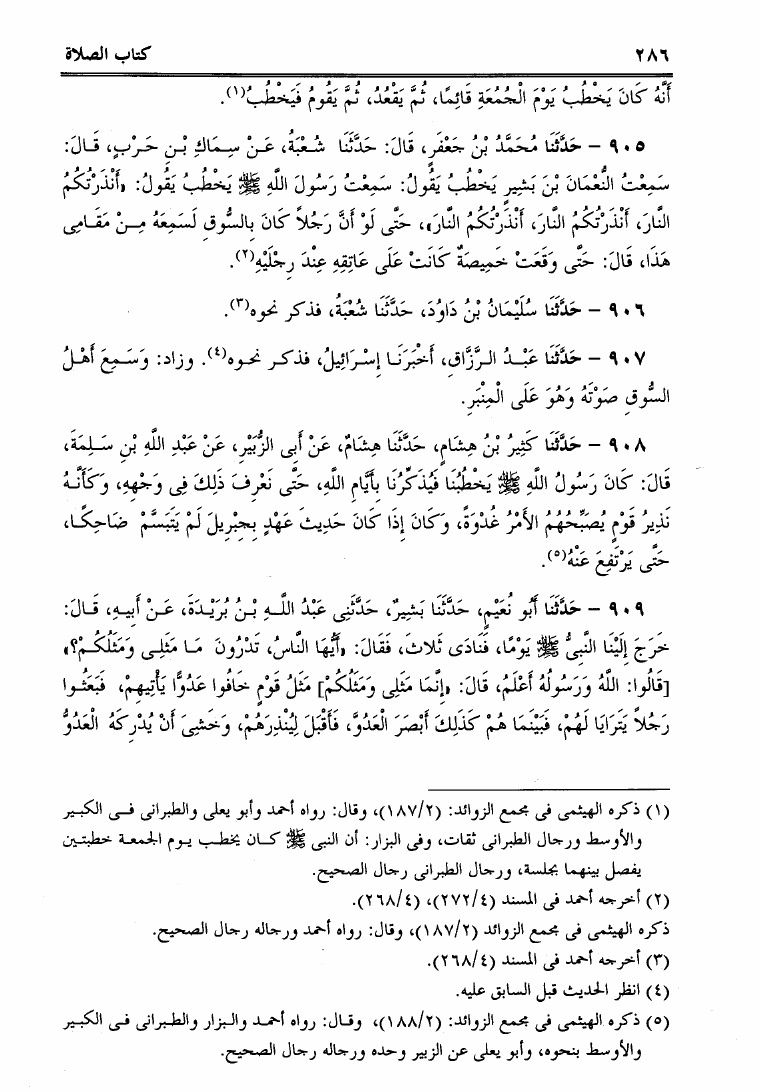 ٢٨٦ كتاب الصلاة
أَنَّهُ كَانَ يَخْطُبُ يَوْمَ الْجُمُعَةِ قَائِمًا، ثُمَّ يَقْعُدُ، ثُمَّ يَقُومُ فَيَخْطُبُ(١).
٩٠٥ – حَدَّثَنَا مُحَمَّدُ بْنُ جَعْفَرٍ، قَالَ: حَدَّثَنَا شُعْبَةُ، عَنْ سِمَاكِ بْنِ حَرْبٍ، قَالَ:
سَمِعْتُ النُّعْمَانَ بْنَ بَشِيرٍ يَخْطُبُ يَقُولُ: سَمِعْتُ رَسُولَ اللَّهِ ﷺ يَخْطُبُ يَقُولُ: «أَنْذَرْتُكُمُ
النَّارَ، أَنْذَرْتُكُمُ النَّارَ، أَنْذَرْتُكُمُ النَّارَ»، حَتَّى لَوْ أَنَّ رَجُلاً كَانَ بِالسُّوقِ لَسَمِعَهُ مِنْ مَقَامِى
هَذَا، قَالَ: حَتَّى وَقَعَتْ خَمِيصَةٌ كَانَتْ عَلَى عَاتِقِهِ عِنْدَ رِجْلَيْهِ(٢).
٩٠٦ – حَدَّثَنَا سُلَيْمَانُ بْنُ دَاوُدَ، حَدَّثَنَا شُعْبَةُ، فذكر نحوه(٣).
٩٠٧ – حَدَّثَنَا عَبْدُ الرَّزَّاقِ، أَخْبَرَنَا إِسْرَائِيلُ، فذكر نحوه(٤). وزاد: وَسَمِعَ أَهْلُ
السُّوقِ صَوْتَهُ وَهُوَ عَلَى الْمِنْبَرِ.
٩٠٨ – حَدَّثَنَا كَثِيرُ بْنُ هِشَامٍ، حَدَّثَنَا هِشَامٌ، عَنْ أَبِى الزُّبَيْرِ، عَنْ عَبْدِ اللَّهِ بْنِ سَلِمَةَ،
قَالَ: كَانَ رَسُولُ اللَّهِ ﷺ يَخْطُبُنَا فَيُذَكِّرُنَا بِأَيَّامِ اللَّهِ، حَتَّى نَعْرِفَ ذَلِكَ فِى وَجْهِهِ، وَكَأَنَّهُ
نَذِيرُ قَوْمٍ يُصَبِّحُهُمُ الأَمْرُ غُدْوَةً، وَكَانَ إِذَا كَانَ حَدِيثَ عَهْدٍ بِجِبْرِيلَ لَمْ يَتَبَسَّمْ ضَاحِكًا،
حَتَّى يَرْتَفِعَ عَنْهُ(٥).
٩٠٩ – حَدَّثَنَا أَبُو نُعَيْمٍ، حَدَّثَنَا بَشِيرٌ، حَدَّثَنِى عَبْدُ اللَّهِ بْنُ بُرَيْدَةَ، عَنْ أَبِيهِ، قَالَ:
خَرَجَ إِلَيْنَا النَّبِىُّ ﷺ يَوْمًا، فَنَادَى ثَلاثَ، فَقَالَ: «أَيُّهَا النَّاسُ، تَدْرُونَ مَا مَثَلِى وَمَثَلُكُمْ؟»
[قَالُوا: اللَّهُ وَرَسُولُهُ أَعْلَمُ، قَالَ: «إِنَّمَا مَثَلِى وَمَثَلُكُمْ] مَثَلُ قَوْمٍ خَافُوا عَدُوًّا يَأْتِيهِمْ، فَبَعَثُوا
رَجُلاً يَتَرَايَا لَهُمْ، فَبَيْنَمَا هُمْ كَذَلِكَ أَبْصَرَ الْعَدُوَّ، فَأَقْبَلَ لِيُنْذِرَهُمْ، وَخَشِىَ أَنْ يُدْرِكَهُ الْعَدُوُّ
(١) ذكره الهيثمى فى مجمع الزوائد: (١٨٧/٢)، وقال: رواه أحمد وأبو يعلى والطبرانى فى الكبير
والأوسط ورجال الطبرانى ثقات، وفى البزار: أن النبى ﷺ كان يخطب يوم الجمعة خطبتين
يفصل بينهما بجلسة، ورجال الطبرانى رجال الصحيح.
(٢) أخرجه أحمد فى المسند (٢٧٢/٤)، (٢٦٨/٤).
ذكره الهيثمى فى مجمع الزوائد (١٨٧/٢)، وقال: رواه أحمد ورجاله رجال الصحيح.
(٣) أخرجه أحمد فى المسند (٢٦٨/٤).
(٤) انظر الحديث قبل السابق عليه.
(٥) ذكره الهيثمى فى مجمع الزوائد: (١٨٨/٢)، وقال: رواه أحمد والبزار والطبرانى فى الكبير
والأوسط بنحوه، وأبو يعلى عن الزبير وحده ورجاله رجال الصحيح.